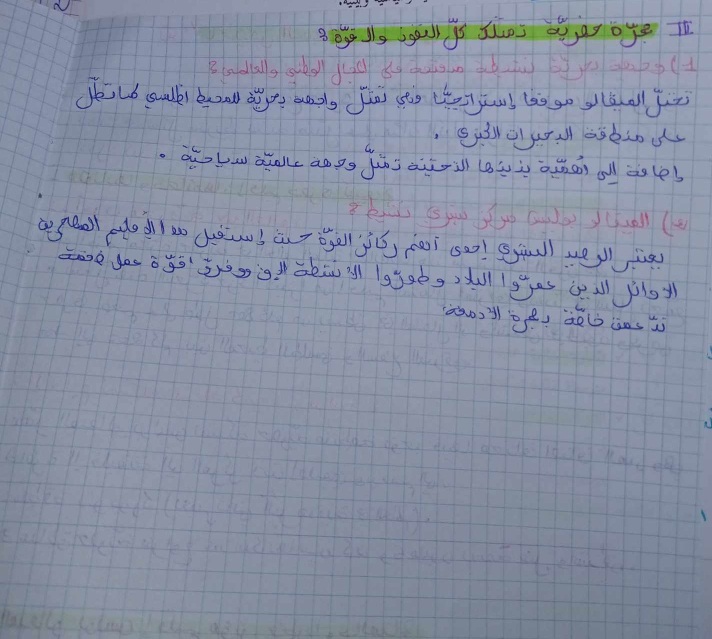 III مجرّة حضريّة تمتلك كلّ النفوذ والقوّة :
1) وجهة بحريّة نشيطة منفتحة على المجال الوطني والعالمي :
تحتلّ الميقالو موقعا إستراتجيّا فهي تمثّل واجهة بحريّة للمحيط اطلسي كما تطلّ
على منطقة البحيرات الكبرى .
إضافة إلى أهمّية بنيتها التحتية تمثّل وجهة عالميّة سياحيّة .
الميقالو بوليس مركز بشري نشط :
يعتبر الرصيد البشري إحدى أهم ركائز القوّة حيث إستقبل هذا الإقليم المهاجرين
الاوائل الذين عمّروا البلاد وطوّروا الانشطة ووفرت قوّة عمل ضخمة
تدعمت خاصّة بهجرة الادمغة.